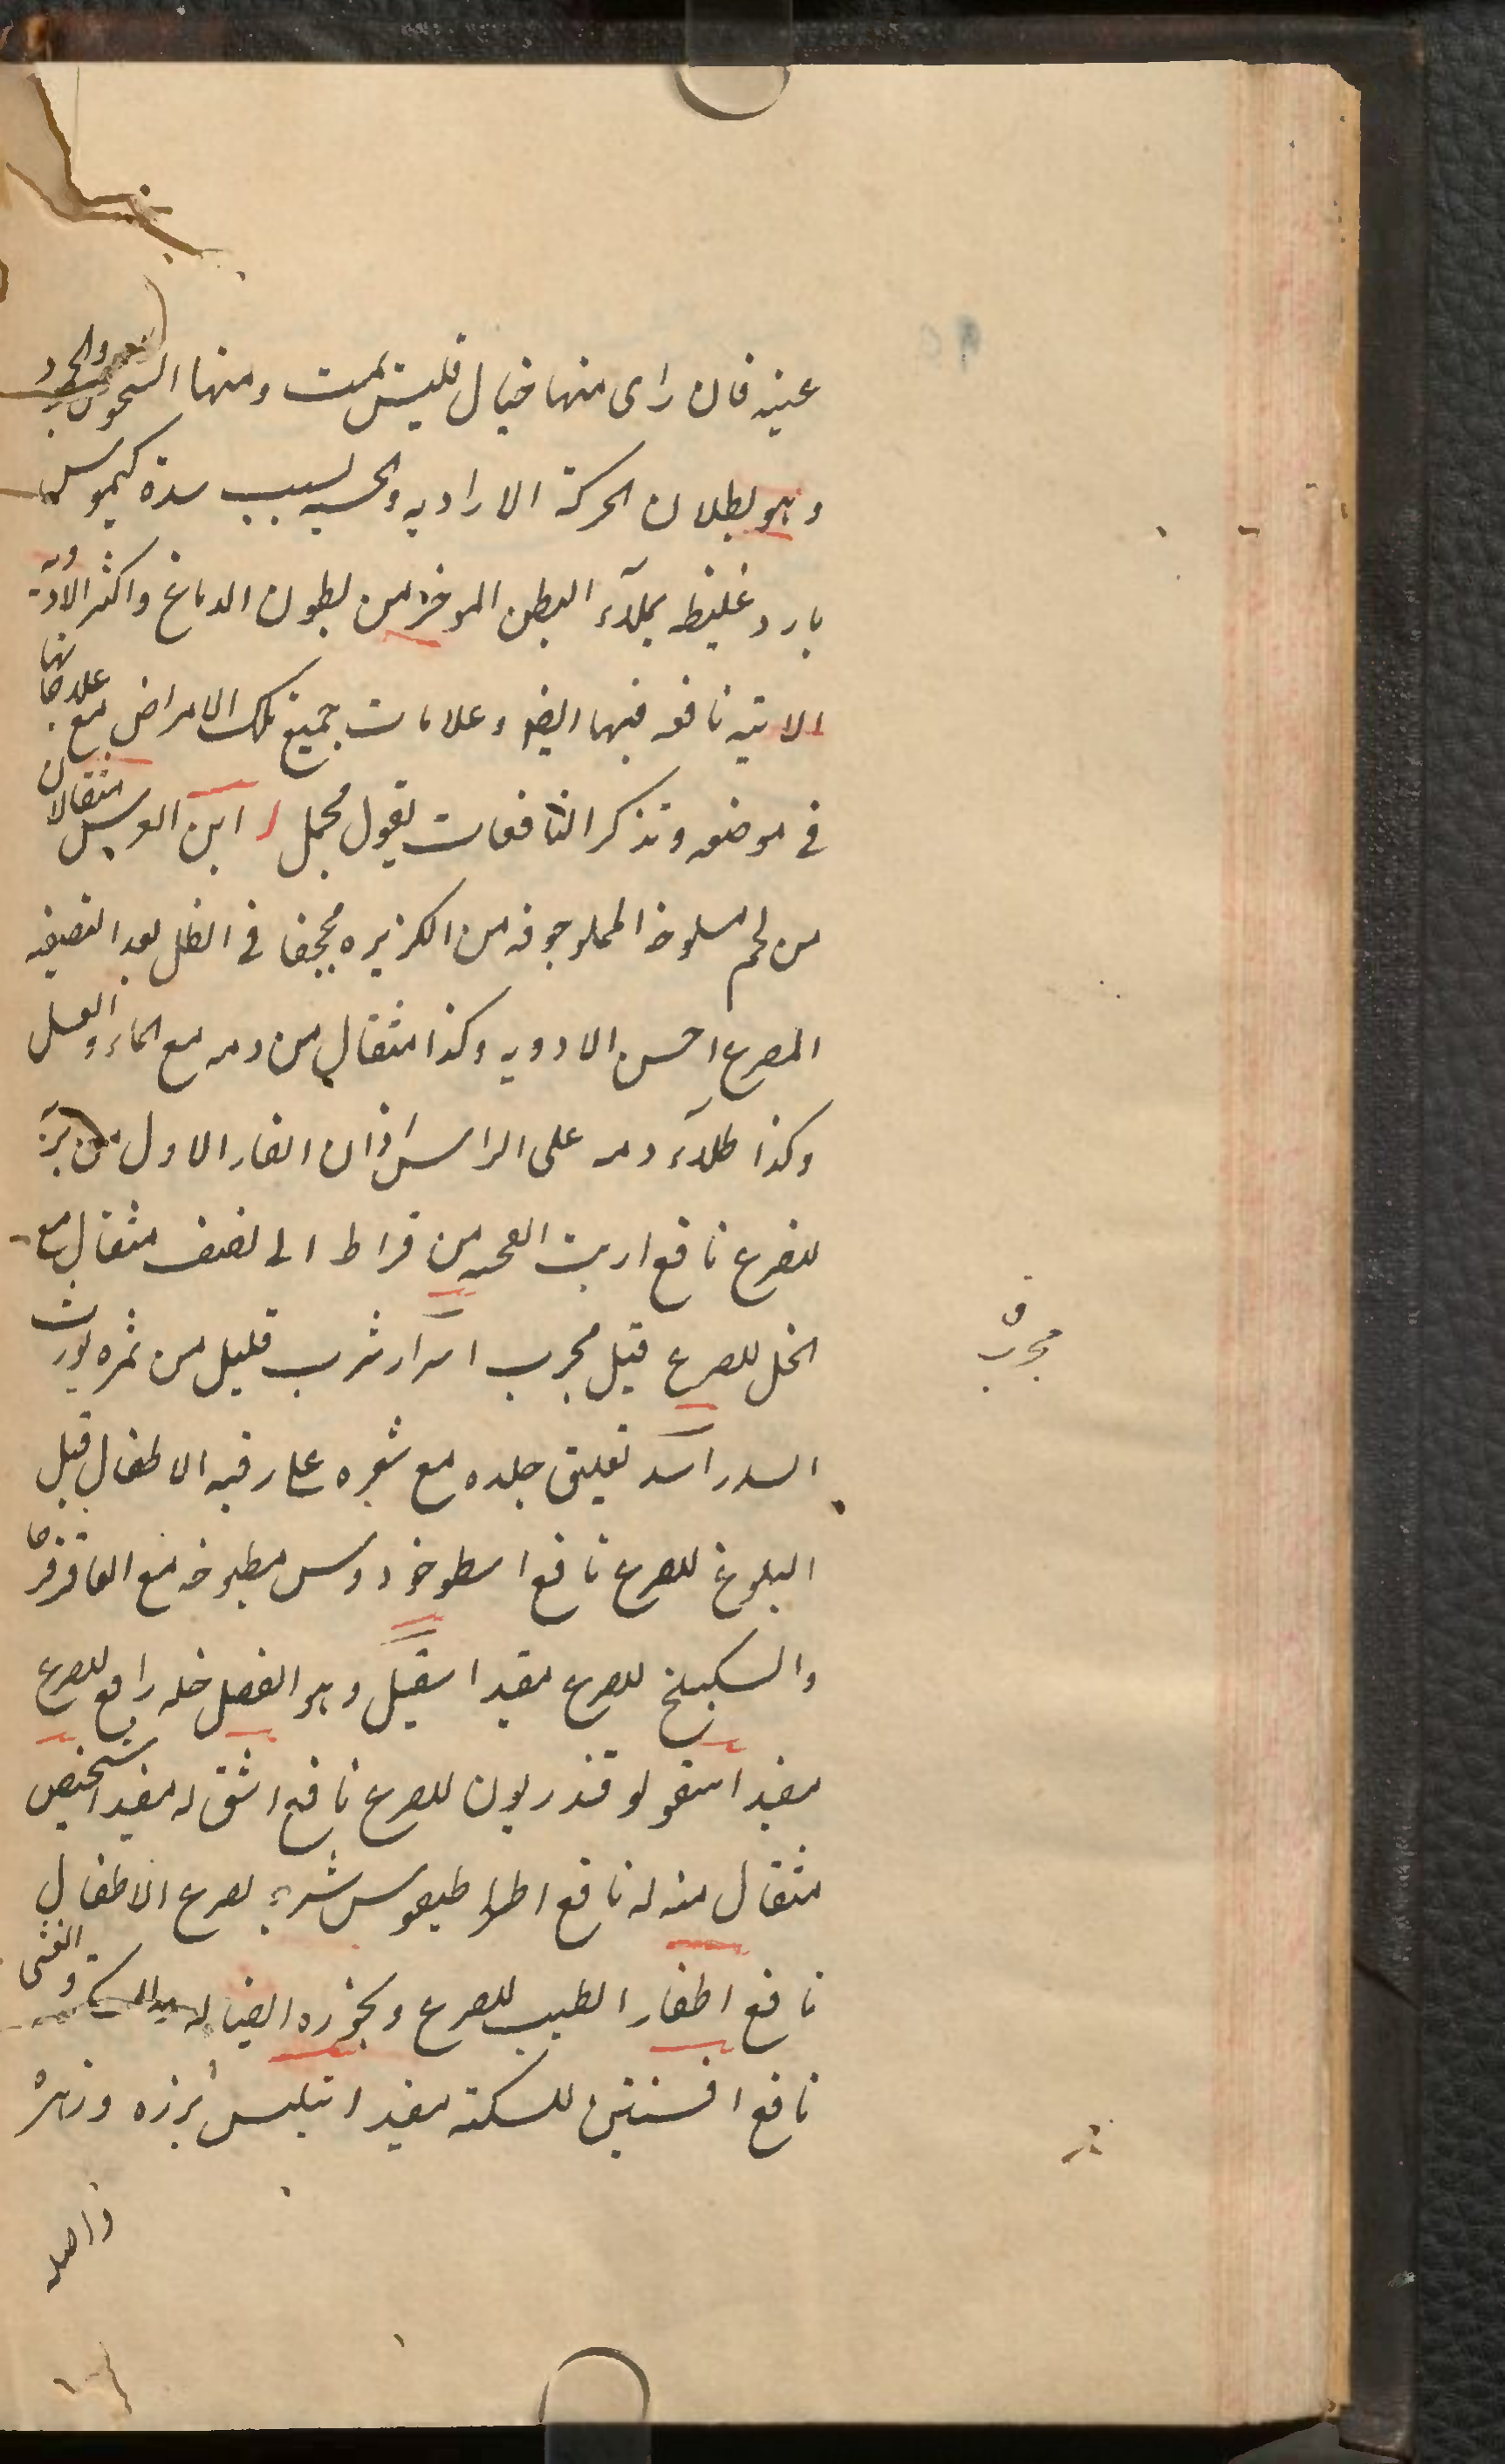 عنيه فان راى منها خيال فليس بميت ومنها السحوس والجمود
وهو بطلان الحركة الاراديه والحسيه لسبب سدة كيموس
بارد غليظ يملاء البطن الموخر من بطون الدماغ واكثر الادوية
الاتيه نافعه فيها ايضا وعلامات جميع تلك الامراض مع علاجاتها
فى موضعه ونذكر النافعات بقول مجمل ابن العرس مثقالان
من لحم مسلوخ المملو جوفه من الكزبره مجففا فى الظل بعد التصفيه
المصرع احسن الادويه وكذا مثقال من دمه مع الماء والعسل
وكذا طلاء دمه على الراس اذان الفار الاول من بزر
للصرع نافع ارنب انفحه من قراط الى نصف مثقال مع
الخل للصرع قيل مجرب اسرار شرب قليل من ثمره يورث
السدر اسد تعليق جلده مع شعره على رقبه الاطفال قبل
البلوغ للصرع نافع اسطوخودوس مطبوخه مع العاقرقرحا
والسكبينج للصرع مفيد اسقيل وهو العنصل خله رافع للصرع
مفيد اسقولوقندريون للصرع نافع اشق له مفيد اشخيص
مثقال منه له نافع اطراطيقوس شربه لصرع الاطفال
نافع اظفار الطيب للصرع وبخوره ايضا له والغشى
نافع افسنتين للسكته مفيد انبلس بزره وزهره
واصله
مجرب